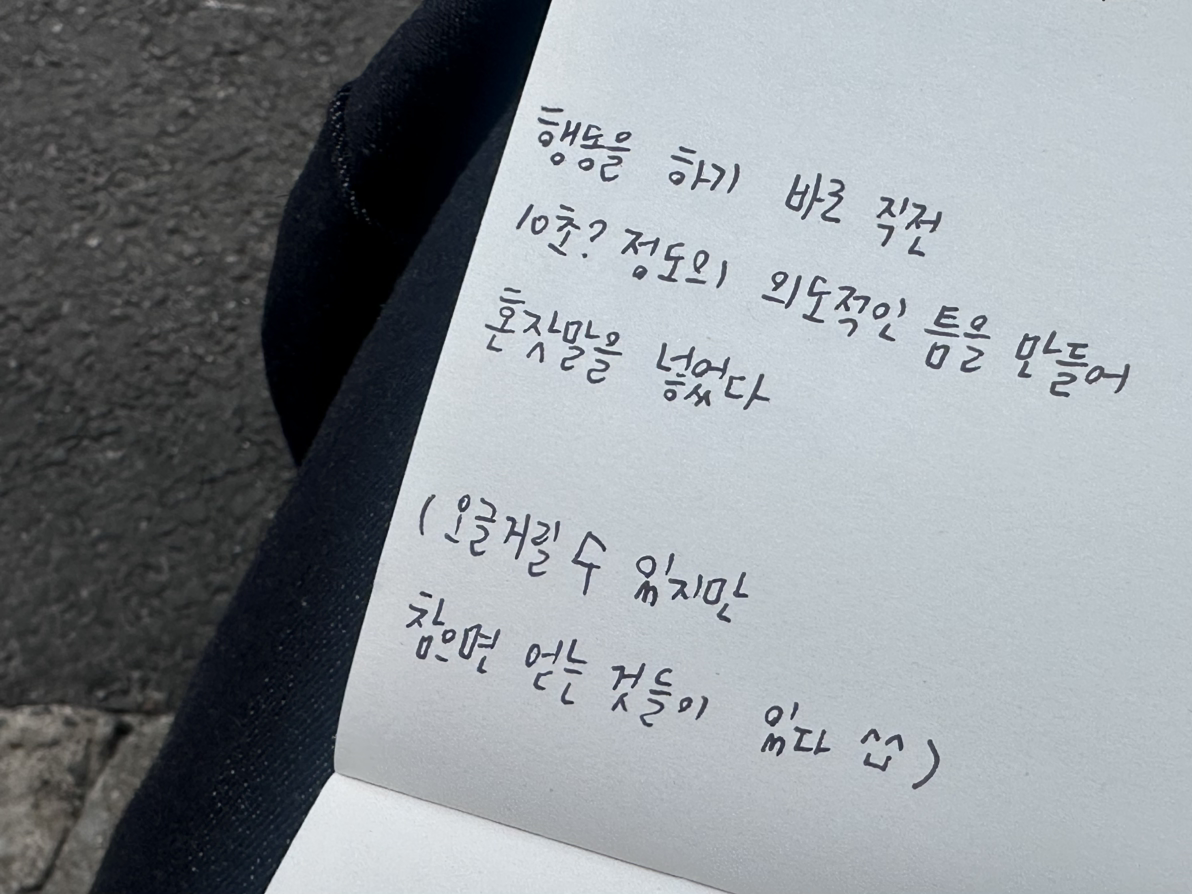 행동을 하기 바로 직전
10초? 정도의 의도적인 틈을 만들어
혼잣말을 넣었다
(오글거릴 수 있지만
참으면 얻는 것들이 있다 ^^)